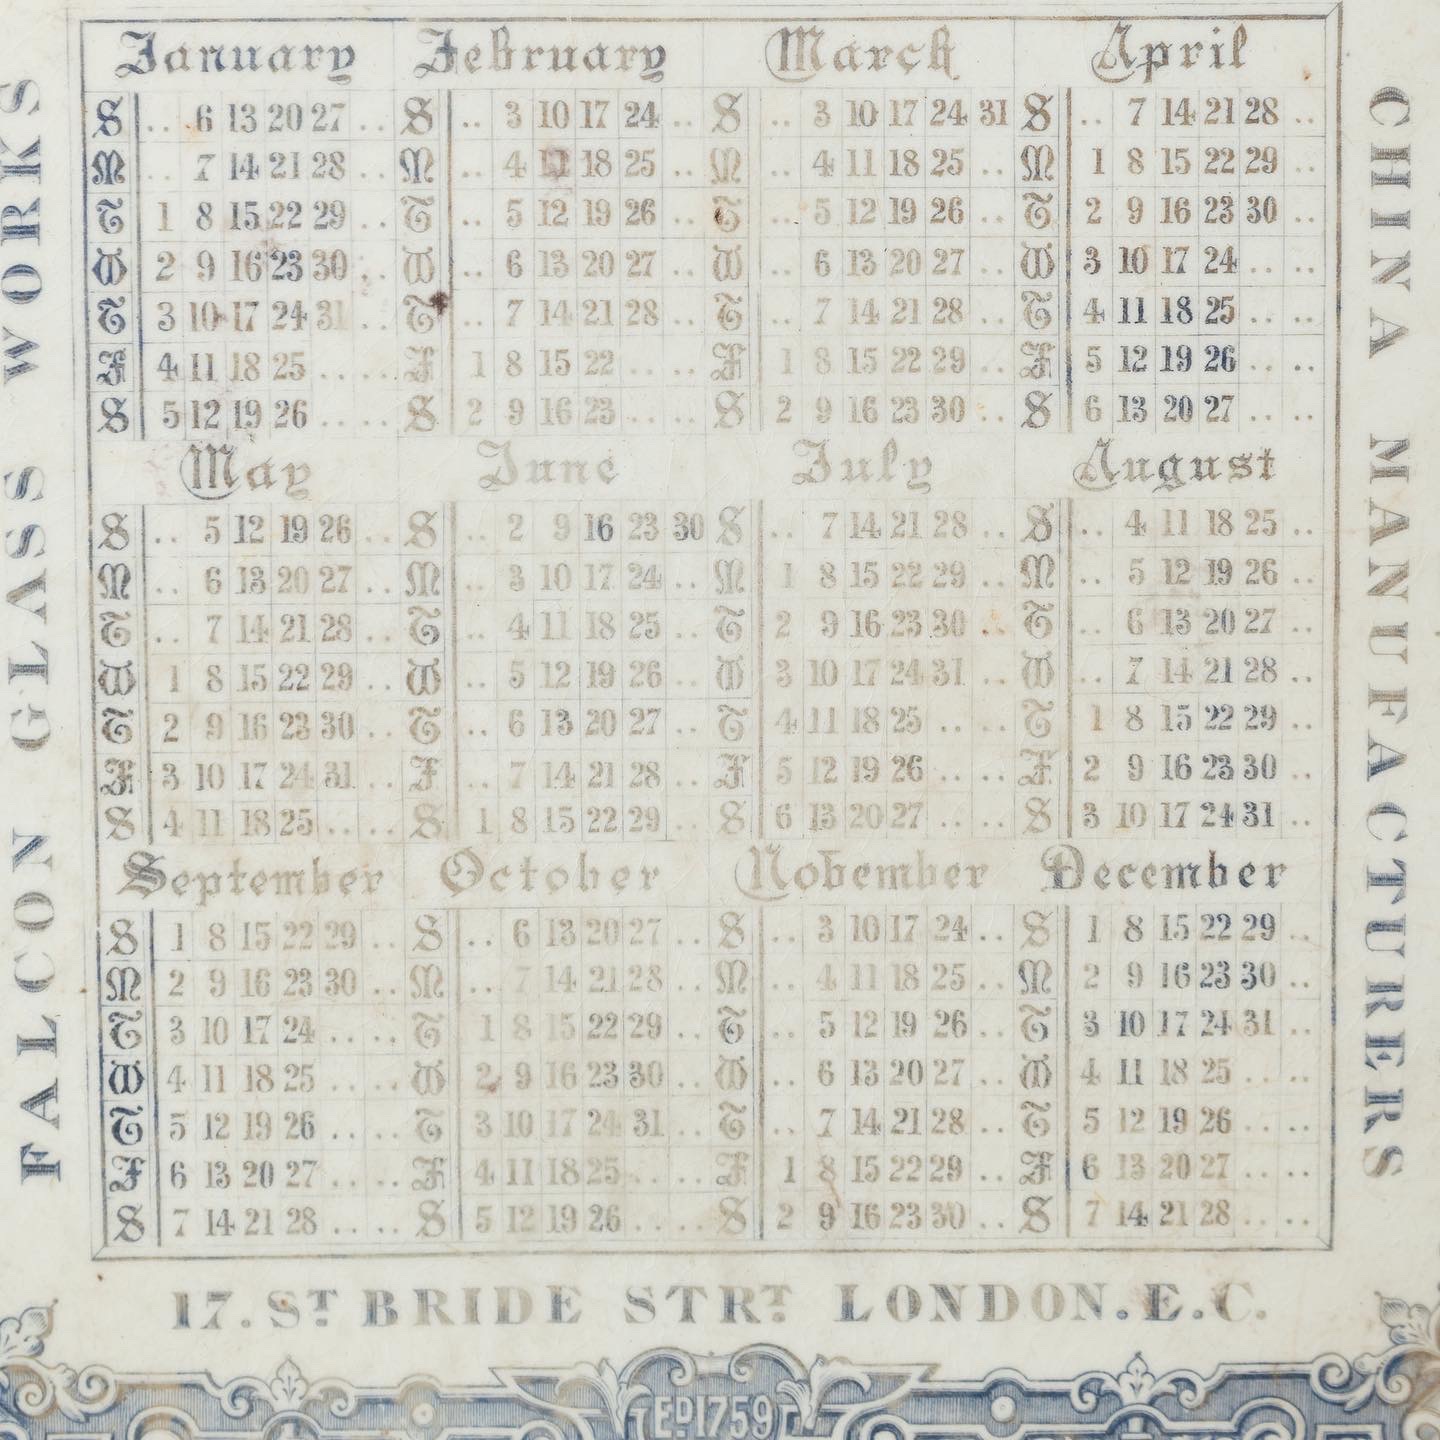 FALCON GLASS WORKS
January February March April
S .. 6 13 20 27 .. S .. 3 10 17 24 .. S .. 3 10 17 24 31 S .. 7 14 21 28 ..
M .. 7 14 21 28 .. M .. 4 11 18 25 .. M .. 4 11 18 25 .. M 1 8 15 22 29 ..
T 1 8 15 22 29 .. T .. 5 12 19 26 .. T .. 5 12 19 26 .. T 2 9 16 23 30 ..
W 2 9 16 23 30 .. W .. 6 13 20 27 .. W .. 6 13 20 27 .. W 3 10 17 24 .. ..
T 3 10 17 24 31 .. T .. 7 14 21 28 .. T .. 7 14 21 28 .. T 4 11 18 25 .. ..
F 4 11 18 25 .. .. F 1 8 15 22 .. .. F 1 8 15 22 29 .. F 5 12 19 26 .. ..
S 5 12 19 26 .. .. S 2 9 16 23 .. .. S 2 9 16 23 30 .. S 6 13 20 27 .. ..
May June July August
S .. 5 12 19 26 .. S .. 2 9 16 23 30 S .. 7 14 21 28 .. S .. 4 11 18 25 ..
M .. 6 13 20 27 .. M .. 3 10 17 24 .. M 1 8 15 22 29 .. M .. 5 12 19 26 ..
T .. 7 14 21 28 .. T .. 4 11 18 25 .. T 2 9 16 23 30 .. T .. 6 13 20 27 ..
W 1 8 15 22 29 .. W .. 5 12 19 26 .. W 3 10 17 24 31 .. W .. 7 14 21 28 ..
T 2 9 16 23 30 .. T .. 6 13 20 27 .. T 4 11 18 25 .. .. T 1 8 15 22 29 ..
F 3 10 17 24 31 .. F .. 7 14 21 28 .. F 5 12 19 26 .. .. F 2 9 16 23 30 ..
S 4 11 18 25 .. .. S 1 8 15 22 29 .. S 6 13 20 27 .. .. S 3 10 17 24 31 ..
September October November December
S 1 8 15 22 29 .. S .. 6 13 20 27 .. S .. 3 10 17 24 .. S 1 8 15 22 29 ..
M 2 9 16 23 30 .. M .. 7 14 21 28 .. M .. 4 11 18 25 .. M 2 9 16 23 30 ..
T 3 10 17 24 .. .. T 1 8 15 22 29 .. T .. 5 12 19 26 .. T 3 10 17 24 31 ..
W 4 11 18 25 .. .. W 2 9 16 23 30 .. W .. 6 13 20 27 .. W 4 11 18 25 .. ..
T 5 12 19 26 .. .. T 3 10 17 24 31 .. T .. 7 14 21 28 .. T 5 12 19 26 .. ..
F 6 13 20 27 .. .. F 4 11 18 25 .. .. F 1 8 15 22 29 .. F 6 13 20 27 .. ..
S 7 14 21 28 .. .. S 5 12 19 26 .. .. S 2 9 16 23 30 .. S 7 14 21 28 .. ..
CHINA MANUFACTURERS
17. ST BRIDE STRT LONDON. E. C.
ED 1759